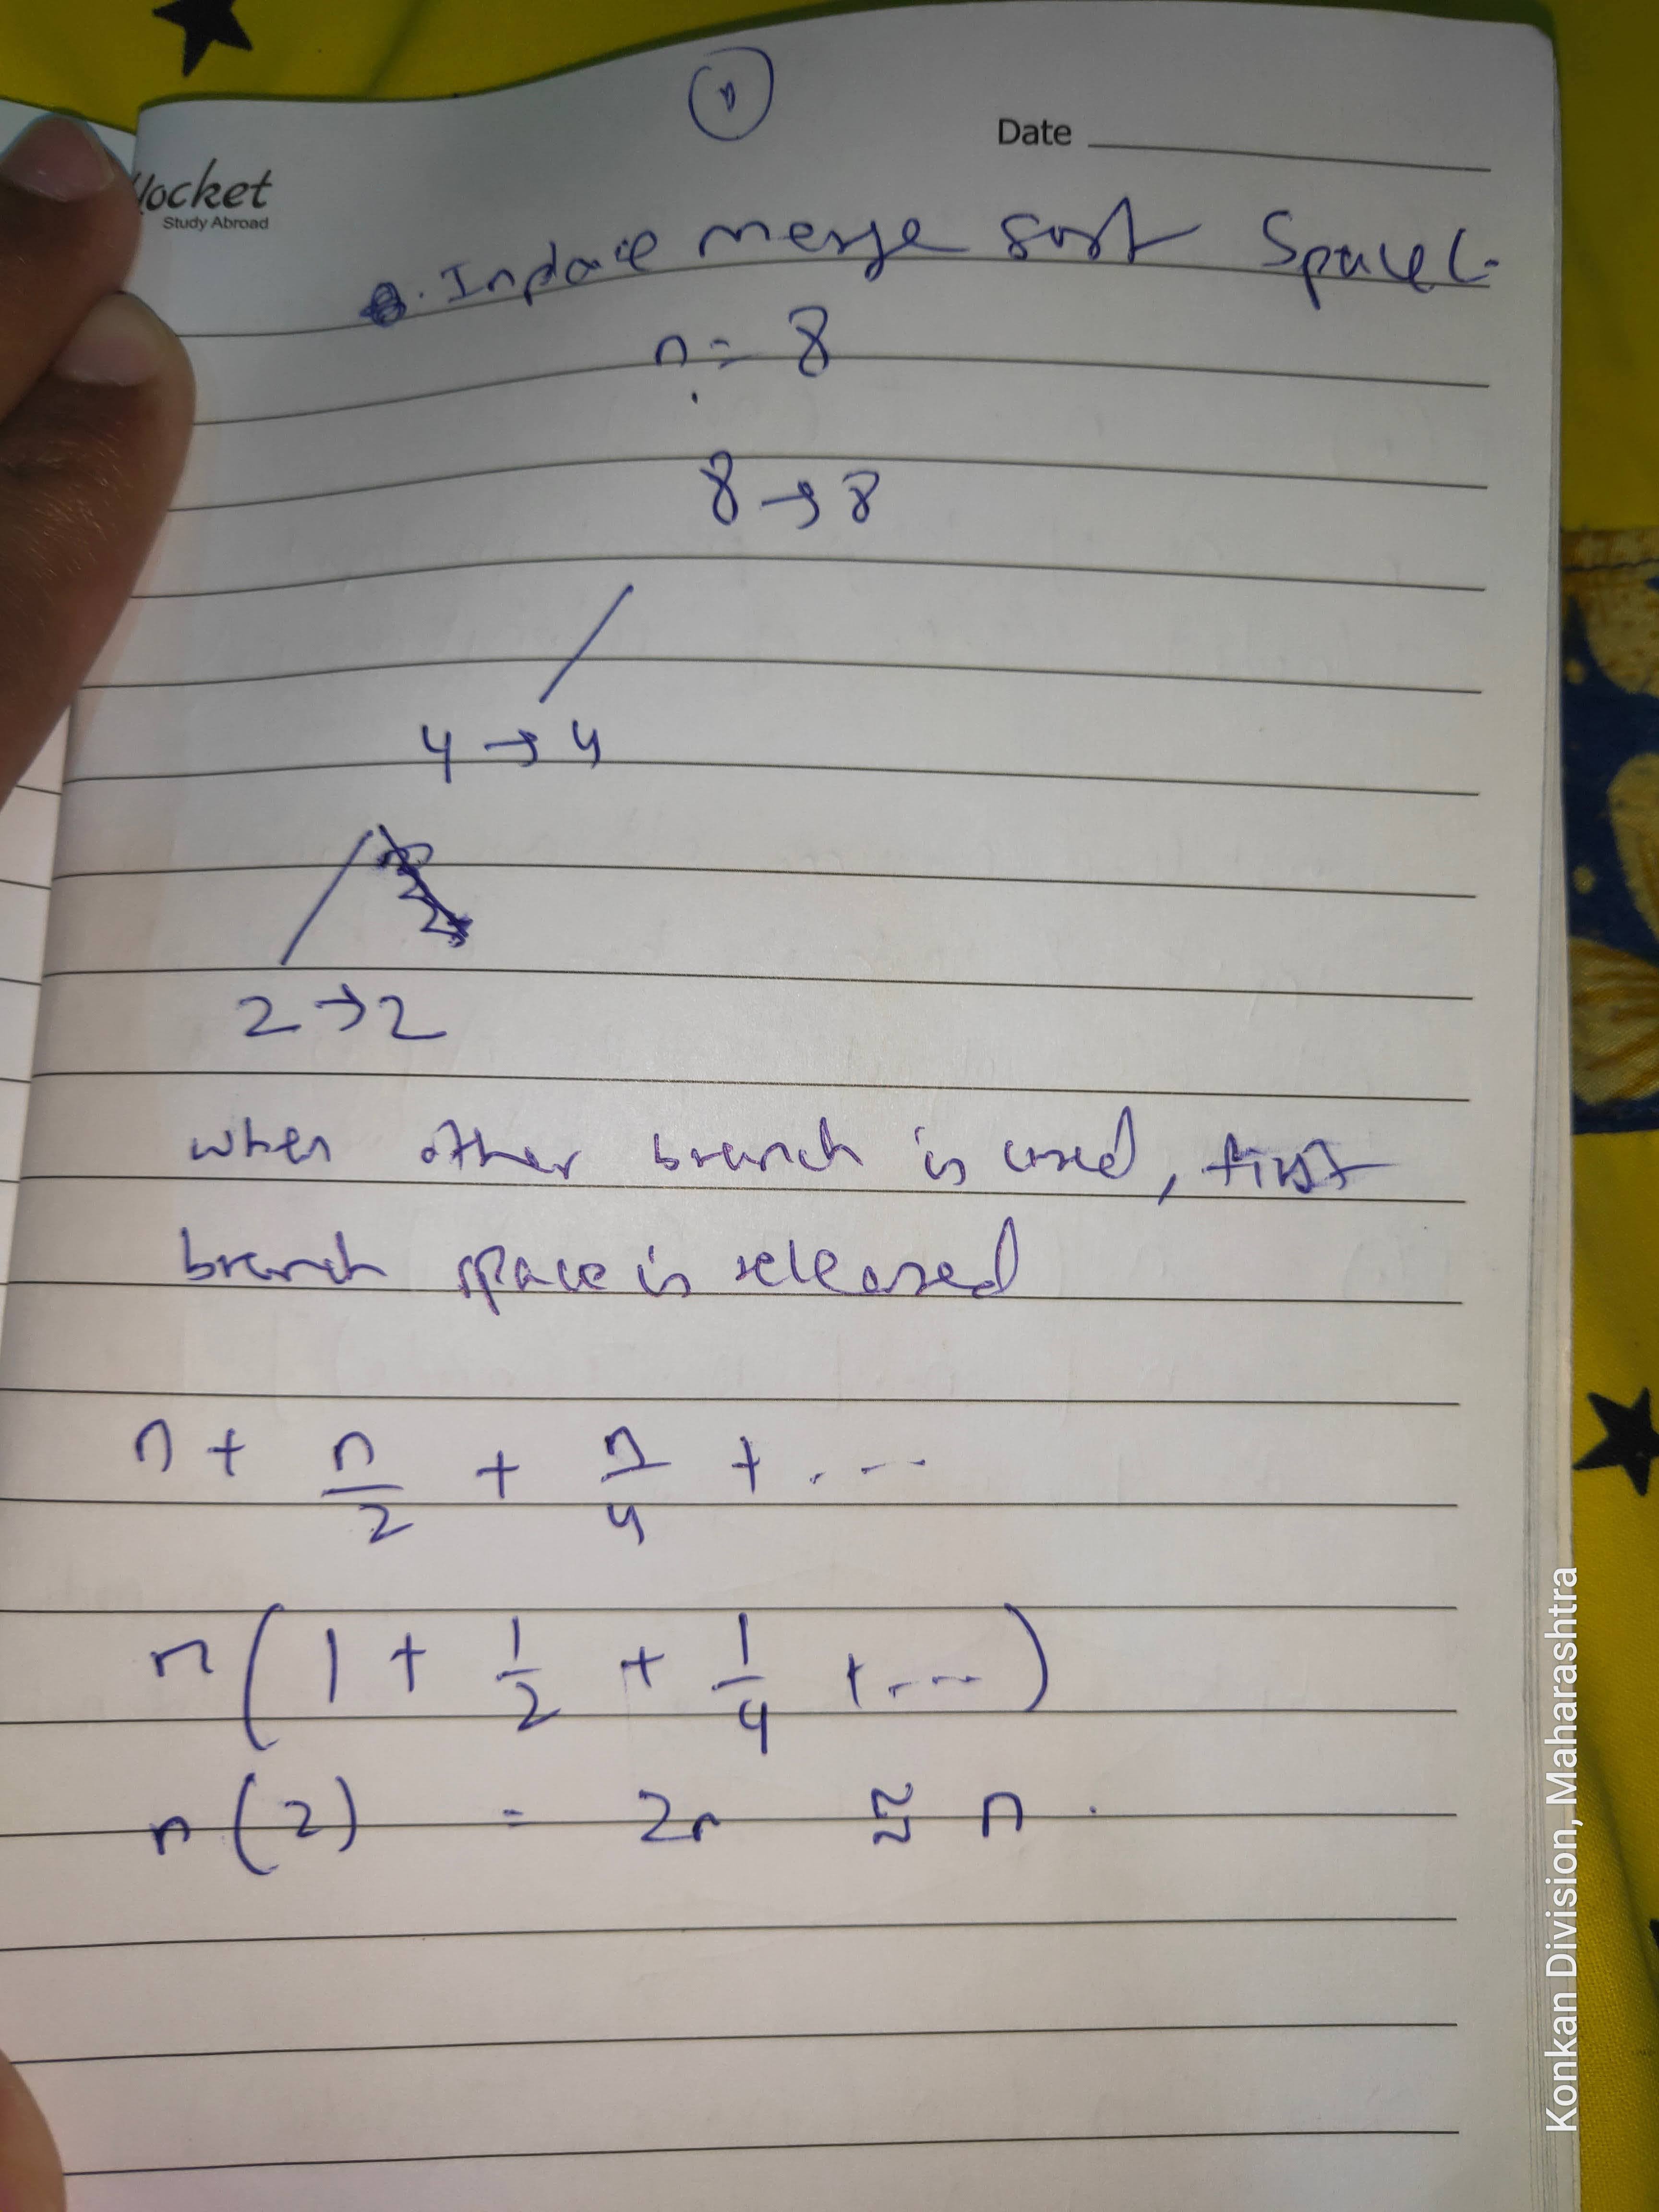 Date
ocket
Study Abroad
Inplace merge sort Space C.
n = 8
8 → 8
4 → 4
2 → 2
when other branch is used, first
branch space is released
n + n/2 + n/4 + ....
n ( 1 + 1/2 + 1/4 + .... )
n (2) = 2n ≈ n .
Konkan Division, Maharashtra